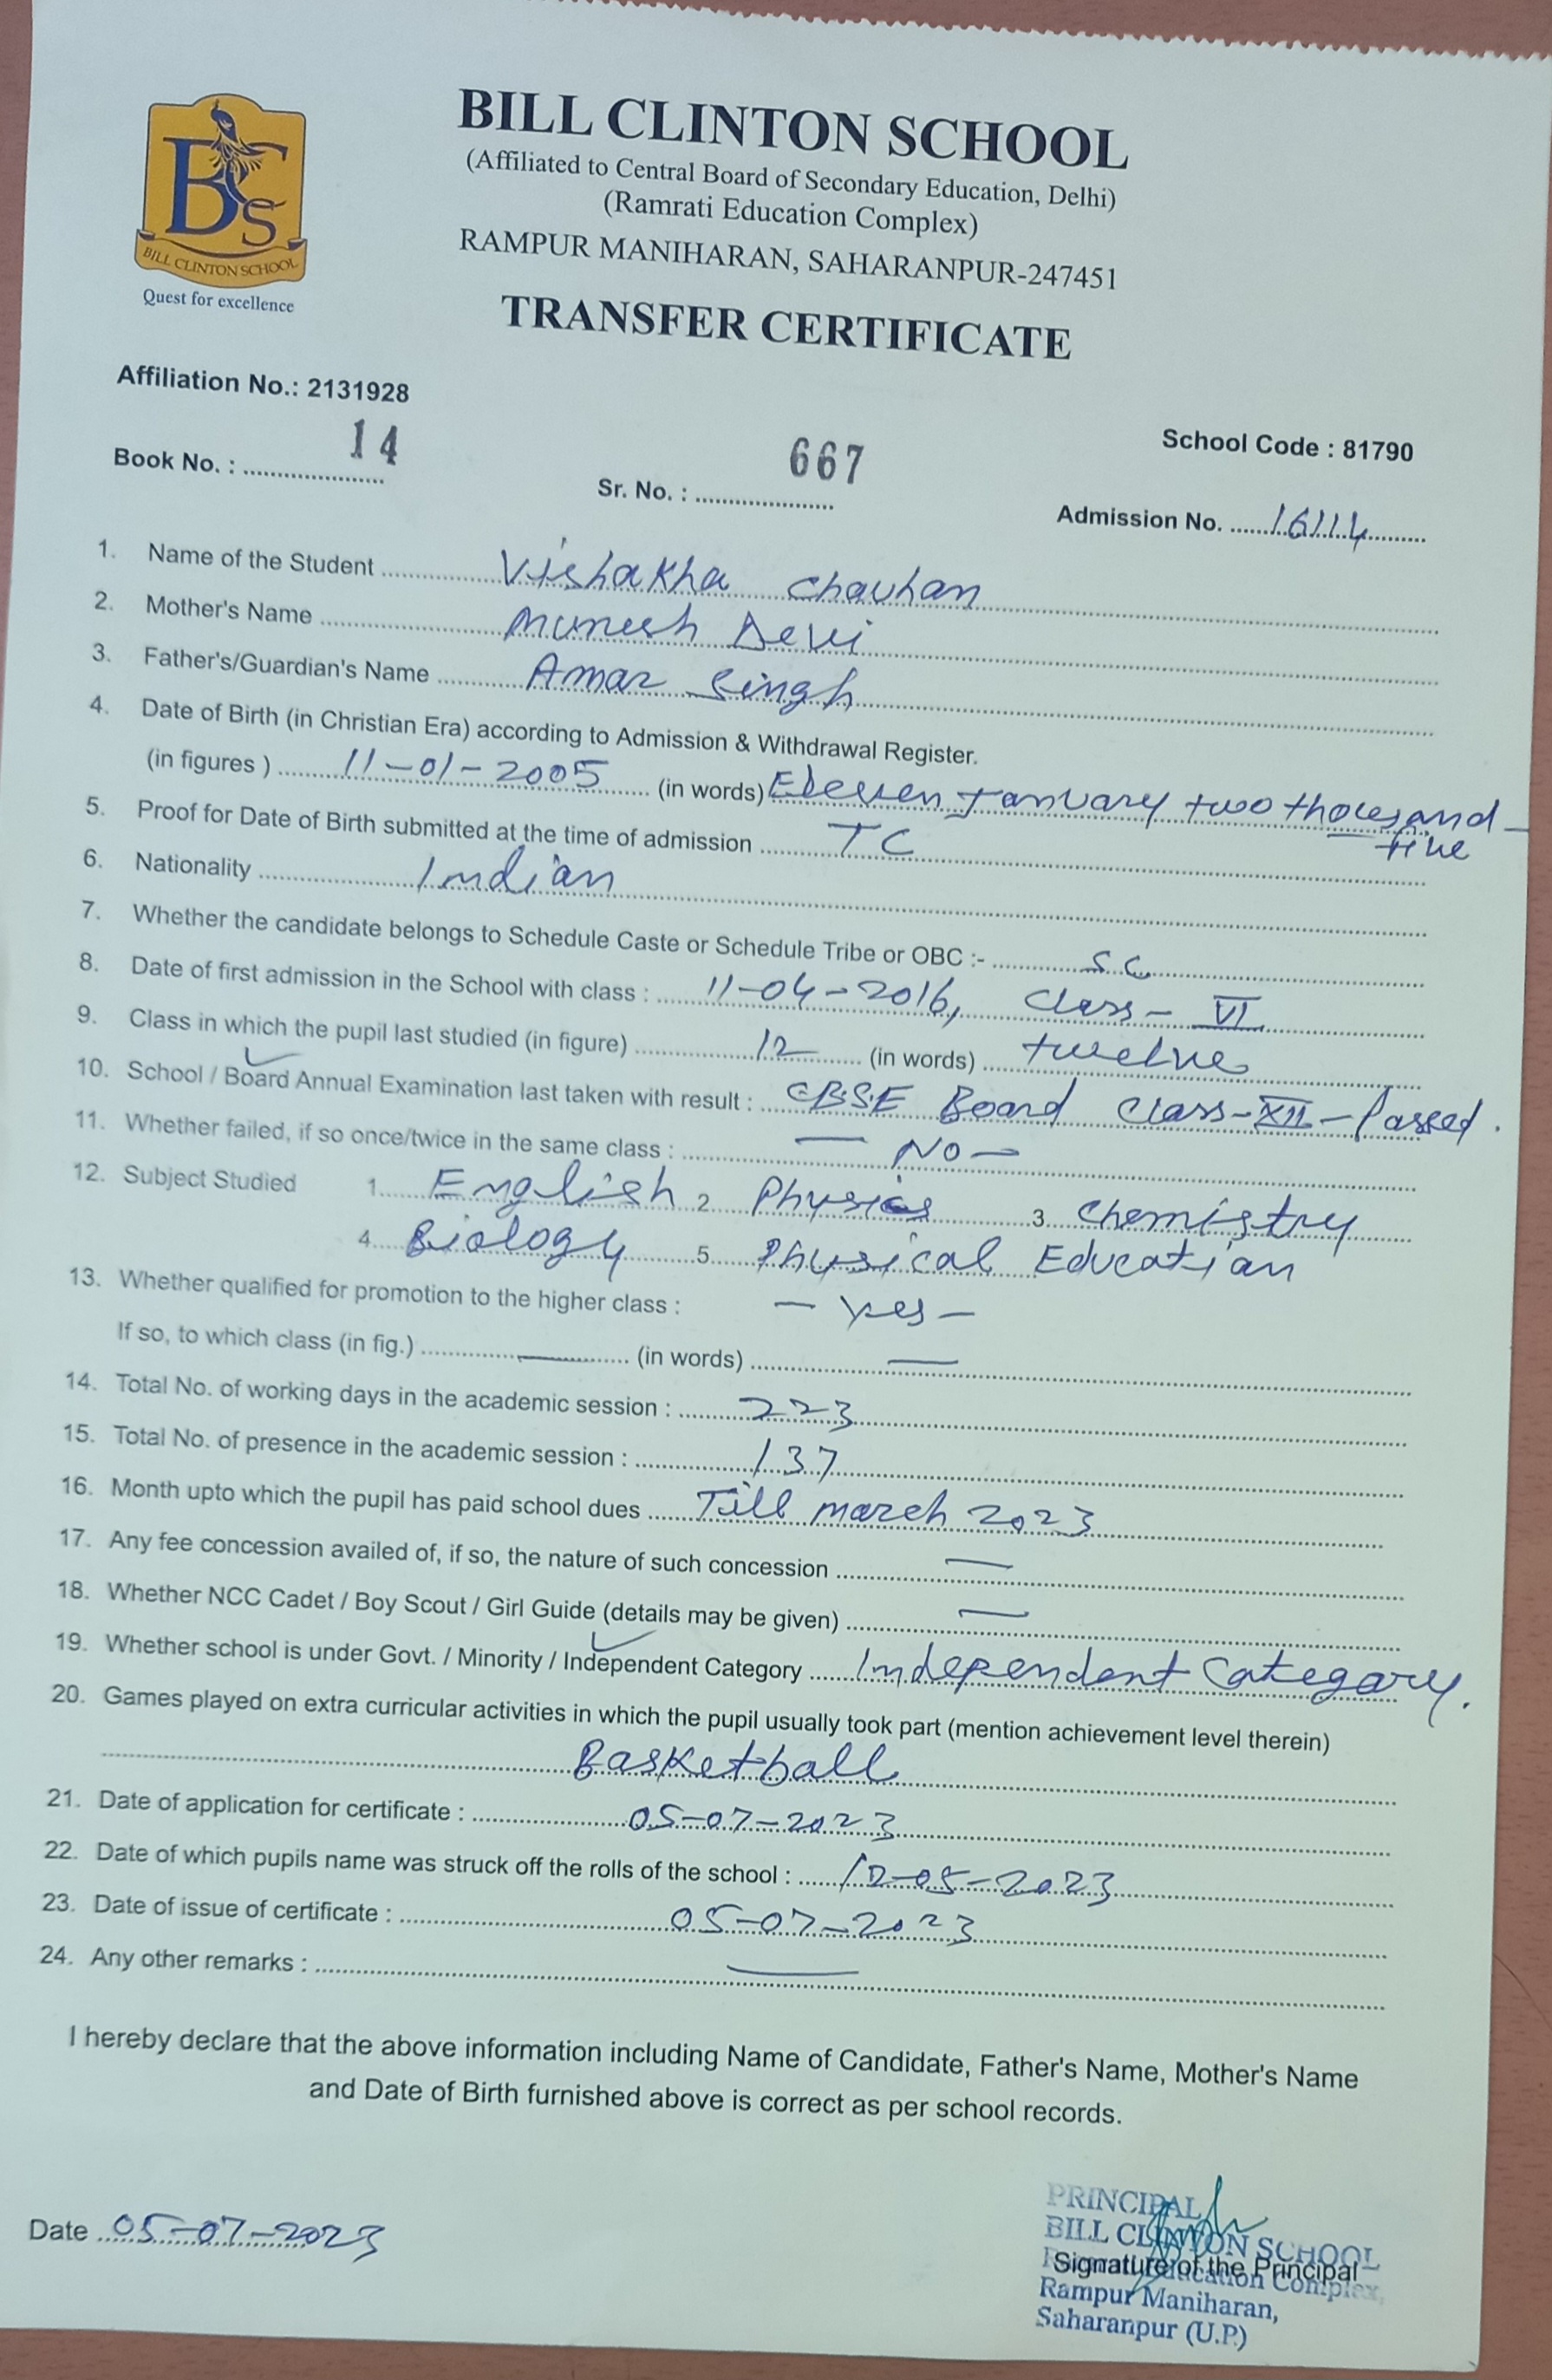 BCS
BILL CLINTON SCHOOL
Quest for excellence
BILL CLINTON SCHOOL
(Affiliated to Central Board of Secondary Education, Delhi)
(Ramrati Education Complex)
RAMPUR MANIHARAN, SAHARANPUR-247451
TRANSFER CERTIFICATE
Affiliation No.: 2131928
School Code : 81790
Book No. : 14 Sr. No. : 667 Admission No. 16114
1. Name of the Student Vishakha Chauhan
2. Mother's Name Munesh Devi
3. Father's/Guardian's Name Amar Singh
4. Date of Birth (in Christian Era) according to Admission & Withdrawal Register.
(in figures ) 11-01-2005 (in words) Eleven January two thousand -
five
5. Proof for Date of Birth submitted at the time of admission TC
6. Nationality Indian
7. Whether the candidate belongs to Schedule Caste or Schedule Tribe or OBC :- S.C
8. Date of first admission in the School with class : 11-04-2016, Class- VI
9. Class in which the pupil last studied (in figure) 12 (in words) twelve
10. School / Board Annual Examination last taken with result : CBSE Board Class-XII-Passed.
11. Whether failed, if so once/twice in the same class : — No —
12. Subject Studied 1. English 2. Physics 3. Chemistry
4. Biology 5. Physical Education
13. Whether qualified for promotion to the higher class : — Yes —
If so, to which class (in fig.) — (in words) —
14. Total No. of working days in the academic session : 223
15. Total No. of presence in the academic session : 137
16. Month upto which the pupil has paid school dues Till march 2023
17. Any fee concession availed of, if so, the nature of such concession —
18. Whether NCC Cadet / Boy Scout / Girl Guide (details may be given) —
19. Whether school is under Govt. / Minority / Independent Category Independent Category.
20. Games played on extra curricular activities in which the pupil usually took part (mention achievement level therein)
Basketball
21. Date of application for certificate : 05-07-2023
22. Date of which pupils name was struck off the rolls of the school : 12-05-2023
23. Date of issue of certificate : 05-07-2023
24. Any other remarks : —
I hereby declare that the above information including Name of Candidate, Father's Name, Mother's Name
and Date of Birth furnished above is correct as per school records.
Date 05-07-2023
PRINCIPAL
BILL CLINTON SCHOOL
Signature of the Principal
Education Complex,
Rampur Maniharan,
Saharanpur (U.P.)